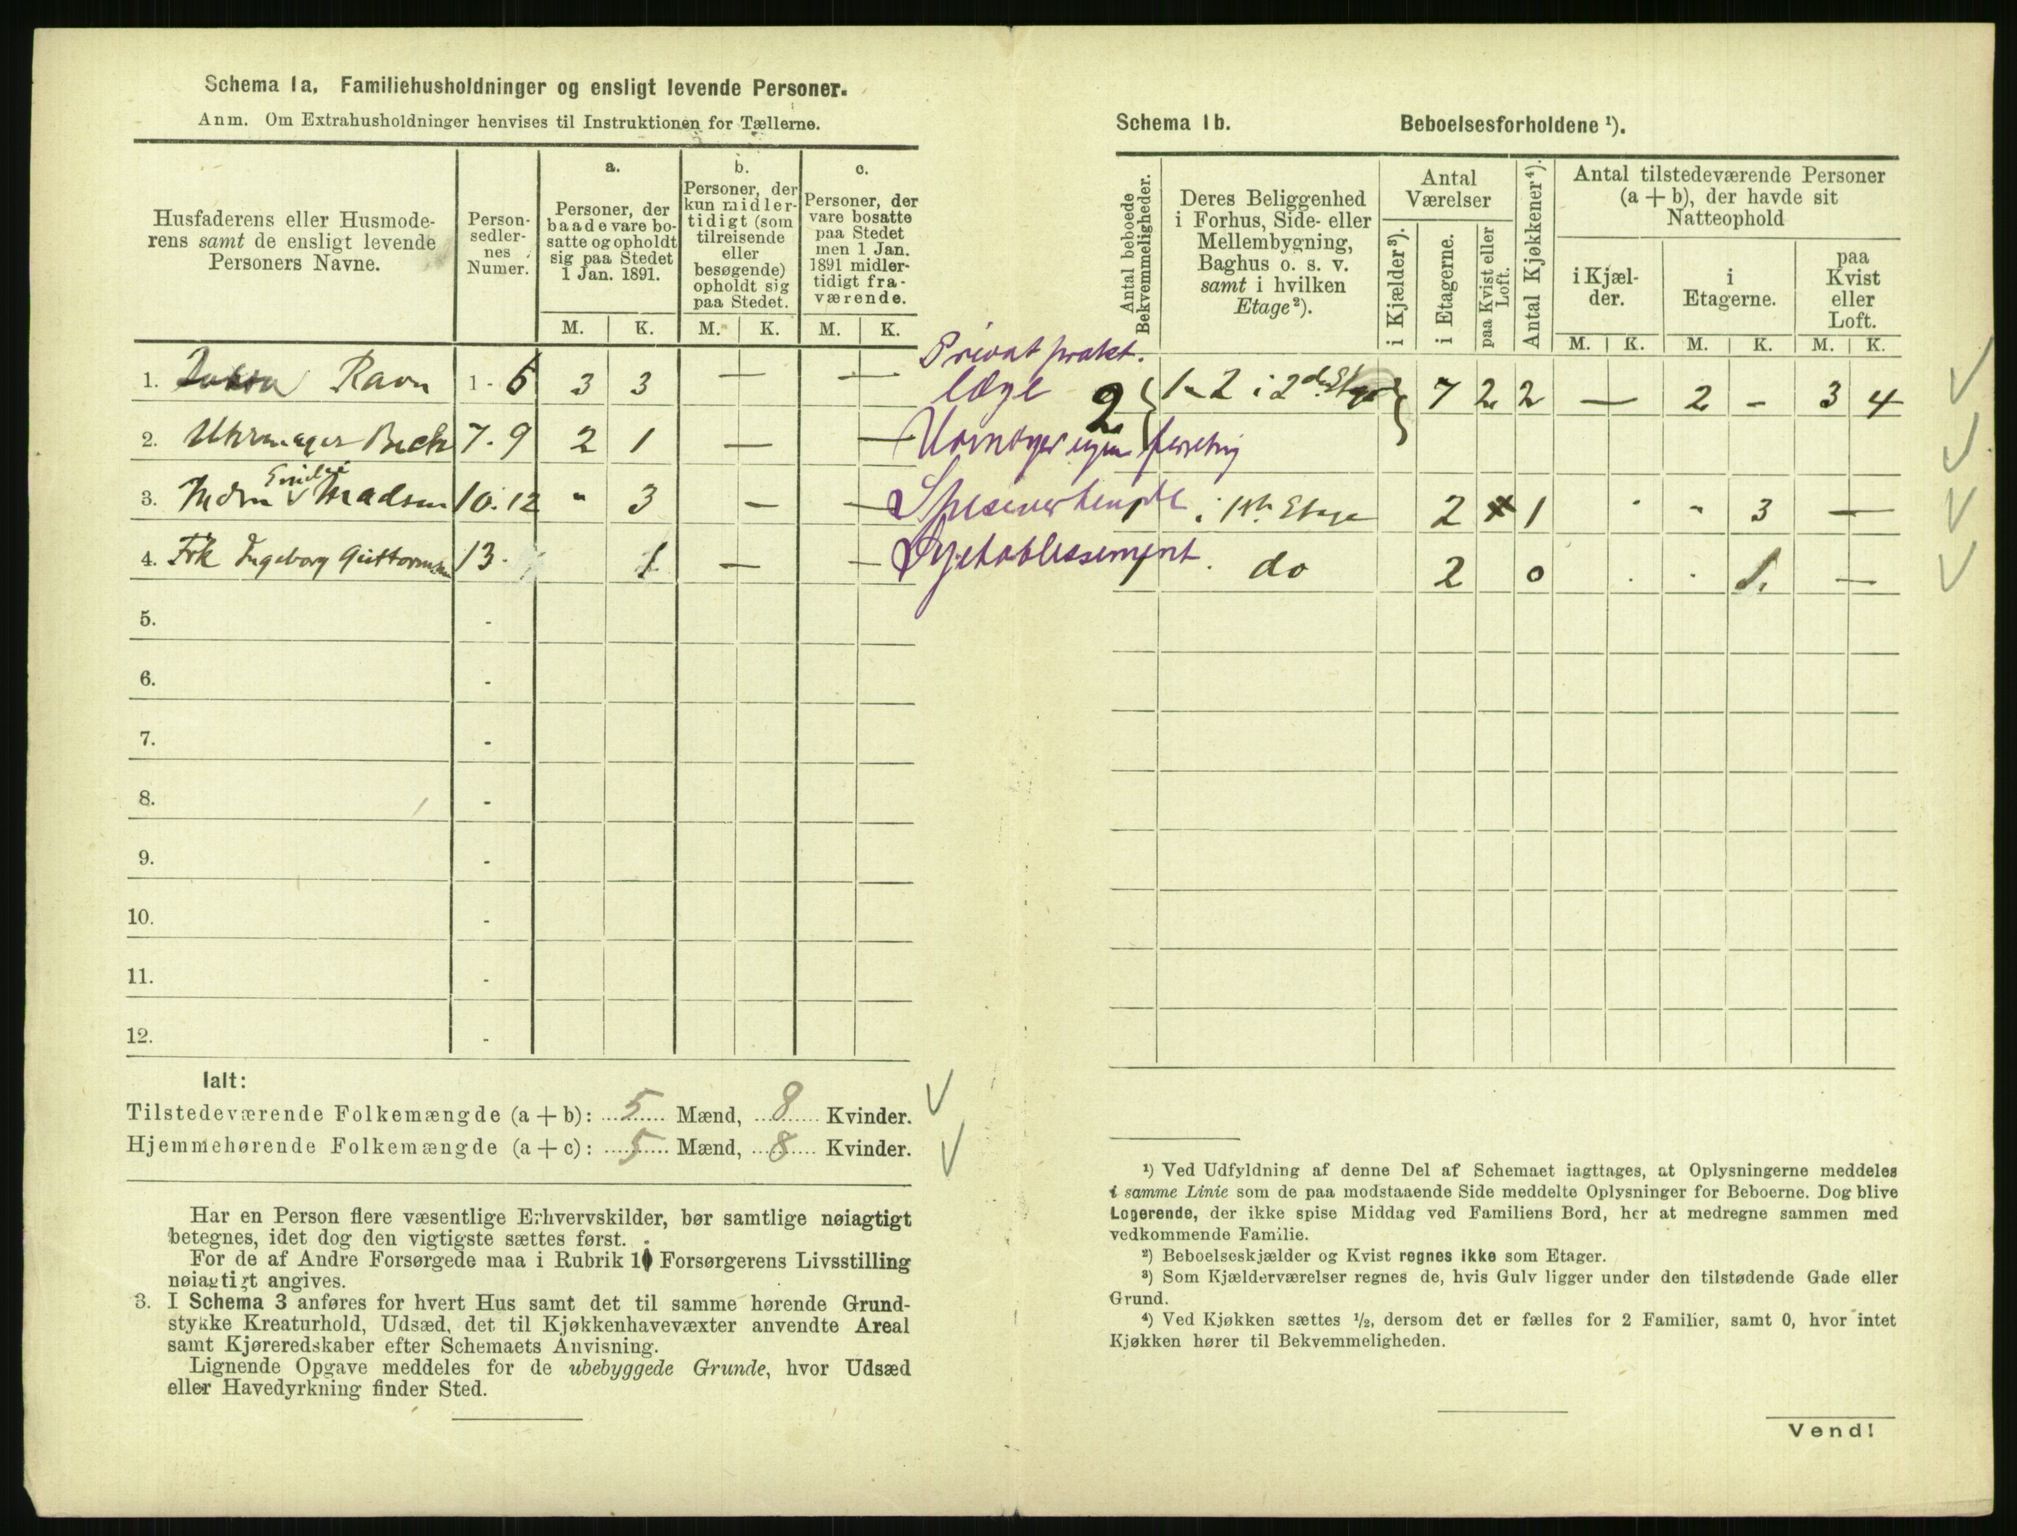 Schema 1a. Familiehusholdninger og ensligt levende Personer.
Anm. Om Extrahusholdninger henvises til Instruktionen for Tællerne.
Husfaderens eller Husmode-
rens samt de ensligt levende
Personers Navne.
Person-
sedler-
nes
Numer.
a.
Personer, der
baade vare bo-
satte og opholdt
sig paa Stedet
1 Jan. 1891.
b.
Personer, der
kun midler-
tidigt (som
tilreisende
eller
besøgende)
opholdt sig
paa Stedet.
c.
Personer, der
vare bosatte
paa Stedet
men 1 Jan.
1891 midler-
tidigt fra-
værende.
M. K. M. K. M. K.
1. Ravn 1 - 6 3 3 — —
2. Uhrmager Beck 7-9 2 1 — —
3. Mdm Emilie Madsen 10-12 " 3 — —
4. Frk Ingeborg Guttormsen 13 - 1 — —
5. -
6. -
7. -
8. -
9. -
10. -
11. -
12. -
Ialt:
Tilstedeværende Folkemængde (a + b): 5 Mænd, 8 Kvinder.
Hjemmehørende Folkemængde (a + c): 5 Mænd, 8 Kvinder.
Har en Person flere væsentlige Erhvervskilder, bør samtlige nøiagtigt
betegnes, idet dog den vigtigste sættes først.
For de af Andre Forsørgede maa i Rubrik 10 Forsørgerens Livsstilling
nøiagtigt angives.
3. I Schema 3 anføres for hvert Hus samt det til samme hørende Grund-
stykke Kreaturhold, Udsæd, det til Kjøkkenhavevæxter anvendte Areal
samt Kjøreredskaber efter Schemaets Anvisning.
Lignende Opgave meddeles for de ubebyggede Grunde, hvor Udsæd
eller Havedyrkning finder Sted.
Privat prakt.
læge
Schema 1b. Beboelsesforholdene ¹).
Antal beboede
Bekvemmeligheder.
Deres Beliggenhed
i Forhus, Side- eller
Mellembygning,
Baghus o. s. v.
samt i hvilken
Etage²).
Antal
Værelser
i Kjælder³).
i Etagerne.
paa Kvist eller
Loft.
Antal Kjøkkener⁴).
Antal tilstedeværende Personer
(a + b), der havde sit
Natteophold
i Kjæl-
der.
i
Etagerne.
paa
Kvist
eller
Loft.
M. K. M. K. M. K.
2 1 - 2 i 2den Etage 7 2 2 — 2 - 3 4
1 i 1ste Etage 2 x 1 " " 3 —
1 do 2 0 . . 1. —
¹) Ved Udfyldning af denne Del af Schemaet iagttages, at Oplysningerne meddeles
i samme Linie som de paa modstaaende Side meddelte Oplysninger for Beboerne. Dog blive
Logerende, der ikke spise Middag ved Familiens Bord, her at medregne sammen med
vedkommende Familie.
²) Beboelseskjælder og Kvist regnes ikke som Etager.
³) Som Kjælderværelser regnes de, hvis Gulv ligger under den tilstødende Gade eller
Grund.
⁴) Ved Kjøkken sættes ½, dersom det er fælles for 2 Familier, samt 0, hvor intet
Kjøkken hører til Bekvemmeligheden.
Vend!